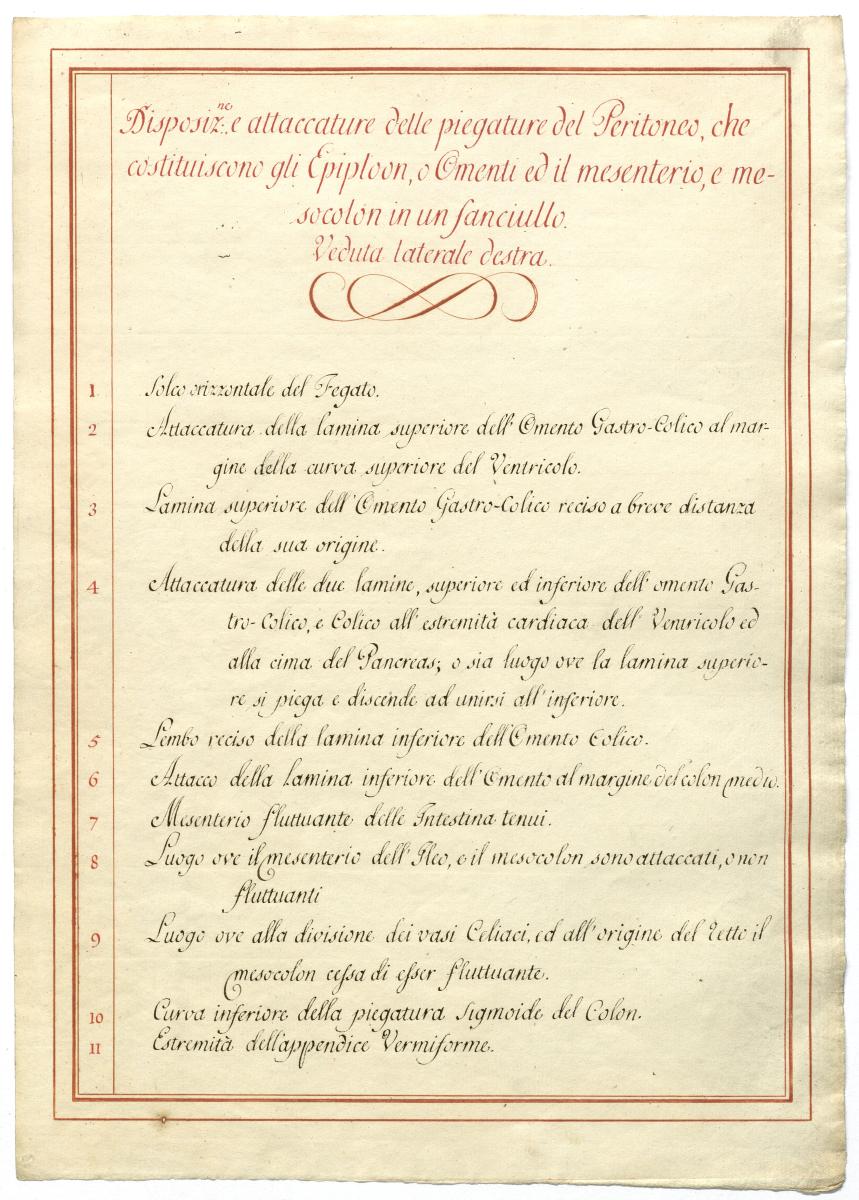 Disposiz.ne e attaccature delle piegature del Peritoneo, che
costituiscono gli Epiploon, o Omenti ed il mesenterio, e me-
socolon in un fanciullo.
Veduta laterale destra.
1 Solco orizzontale del Fegato.
2 Attaccatura della lamina superiore dell' Omento Gastro-Colico al mar-
gine della curva superiore del Ventricolo.
3 Lamina superiore dell' Omento Gastro-Colico reciso a breve distanza
della sua origine.
4 Attaccatura delle due lamine, superiore ed inferiore dell' omento Gas-
tro-Colico, e Colico all' estremità cardiaca dell' Ventricolo ed
alla cima del Pancreas; o sia luogo ove la lamina superio-
re si piega e discende ad unirsi all' inferiore.
5 Lembo reciso della lamina inferiore dell' Omento Colico.
6 Attacco della lamina inferiore dell' Omento al margine del colon medio.
7 Mesenterio fluttuante delle Intestina tenui.
8 Luogo ove il mesenterio dell' Ileo, e il mesocolon sono attaccati, o non
fluttuanti
9 Luogo ove alla divisione dei vasi Celiaci, ed all' origine del retto il
mesocolon cessa di esser fluttuante.
10 Curva inferiore della piegatura Sigmoide del Colon.
11 Estremità dell' appendice Vermiforme.